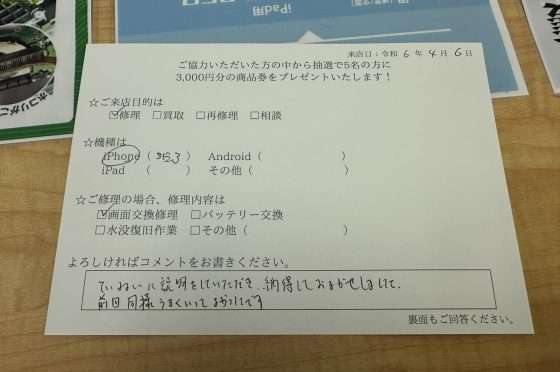 iPad用
ホコリがこ
来店日：令和 6 年 4 月 6 日
ご協力いただいた方の中から抽選で5名の方に
3,000円分の商品券をプレゼントいたします！
☆ご来店目的は
☑修理 □買取 □再修理 □相談
☆機種は
iPhone（ SE3 ） Android（ ）
iPad （ ） その他（ ）
☆ご修理の場合、修理内容は
☑画面交換修理 □バッテリー交換
□水没復旧作業 □その他（ ）
よろしければコメントをお書きください。
ていねいに説明をしていただき、納得しておまかせしまして、
前回同様うまくいってよかったです
裏面もご回答ください。